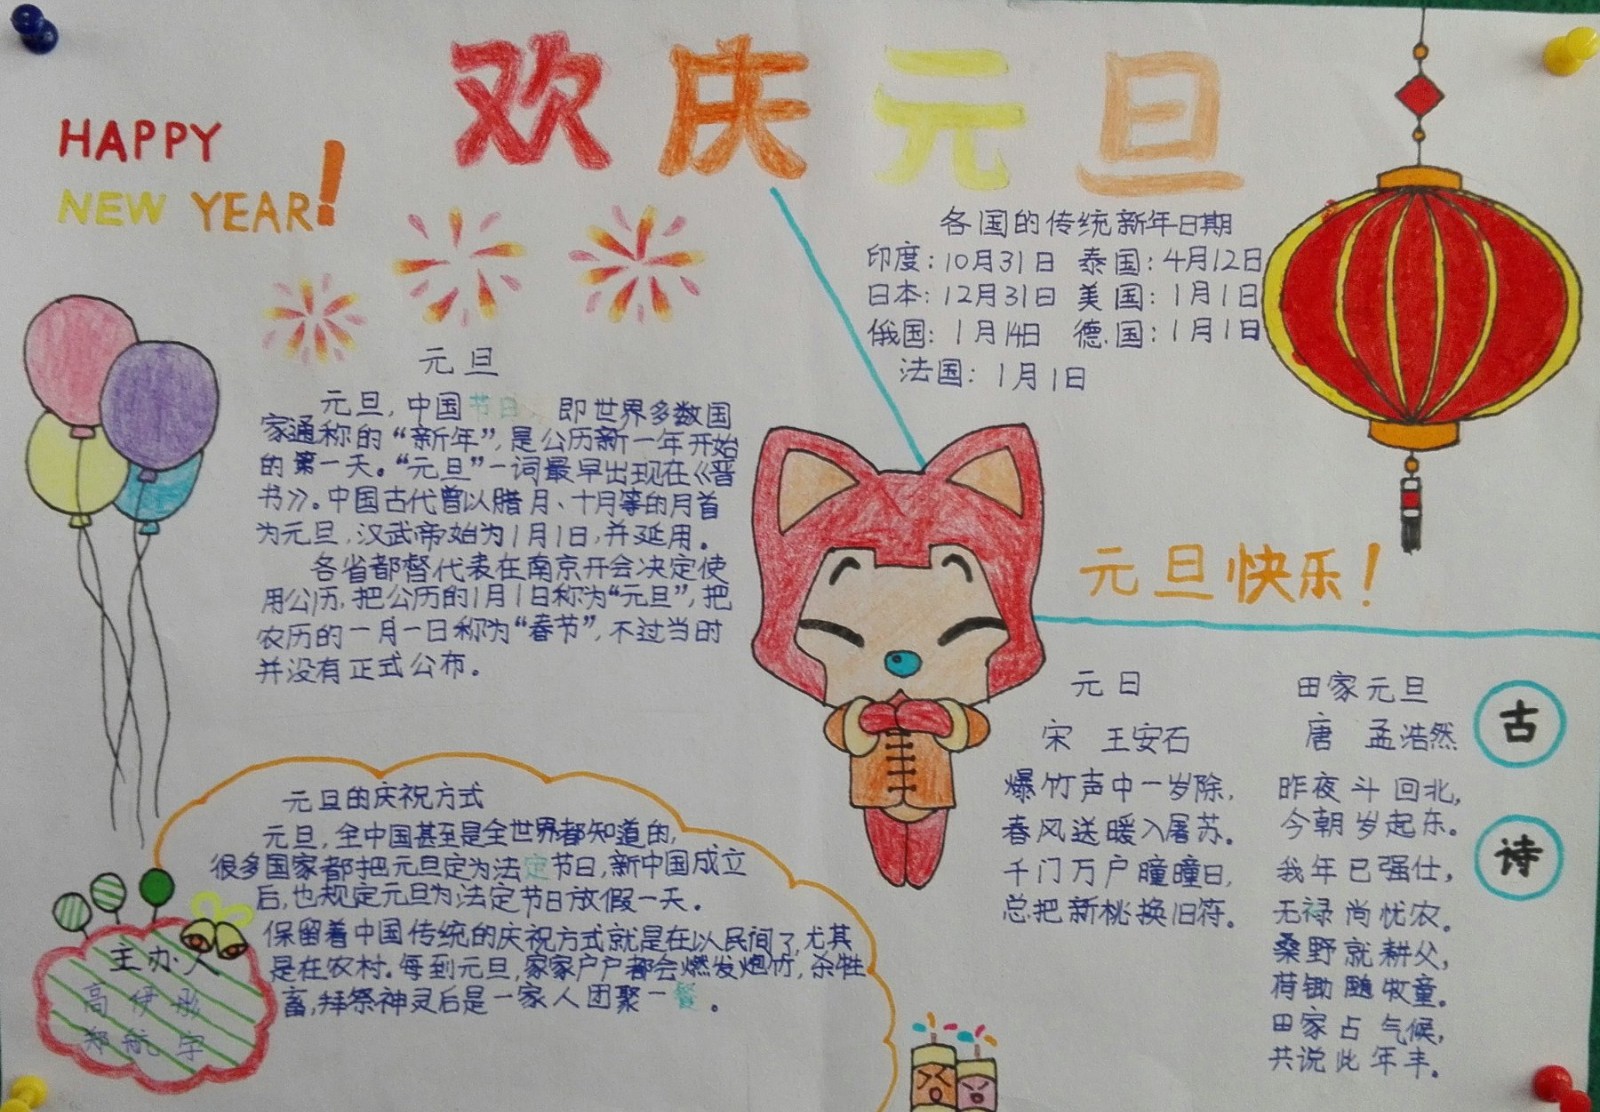 欢庆元旦
HAPPY
NEW YEAR!
各国的传统新年日期
印度：10月31日 泰国：4月12日
日本：12月31日 美国：1月1日
俄国：1月14日 德国：1月1日
法国：1月1日
元旦
元旦，中国节日，即世界多数国
家通称的“新年”，是公历新一年开始
的第一天。“元旦”一词最早出现在《晋
书》。中国古代曾以腊月、十月等的月首
为元旦，汉武帝始为1月1日，并延用。
各省都督代表在南京开会决定使
用公历，把公历的1月1日称为“元旦”，把
农历的一月一日称为“春节”，不过当时
并没有正式公布。
元旦快乐！
元日
宋 王安石
爆竹声中一岁除，
春风送暖入屠苏。
千门万户曈曈日，
总把新桃换旧符。
田家元旦
唐 孟浩然
昨夜斗回北，
今朝岁起东。
我年已强仕，
无禄尚忧农。
桑野就耕父，
荷锄随牧童。
田家占气候，
共说此年丰。
古
诗
元旦的庆祝方式
元旦，全中国甚至是全世界都知道的，
很多国家都把元旦定为法定节日，新中国成立
后，也规定元旦为法定节日放假一天。
保留着中国传统的庆祝方式就是在以民间了，尤其
是在农村。每到元旦，家家户户都会燃发炮竹，杀牲
畜，拜祭神灵后是一家人团聚一餐。
主办人
高伊彤
郑航宇